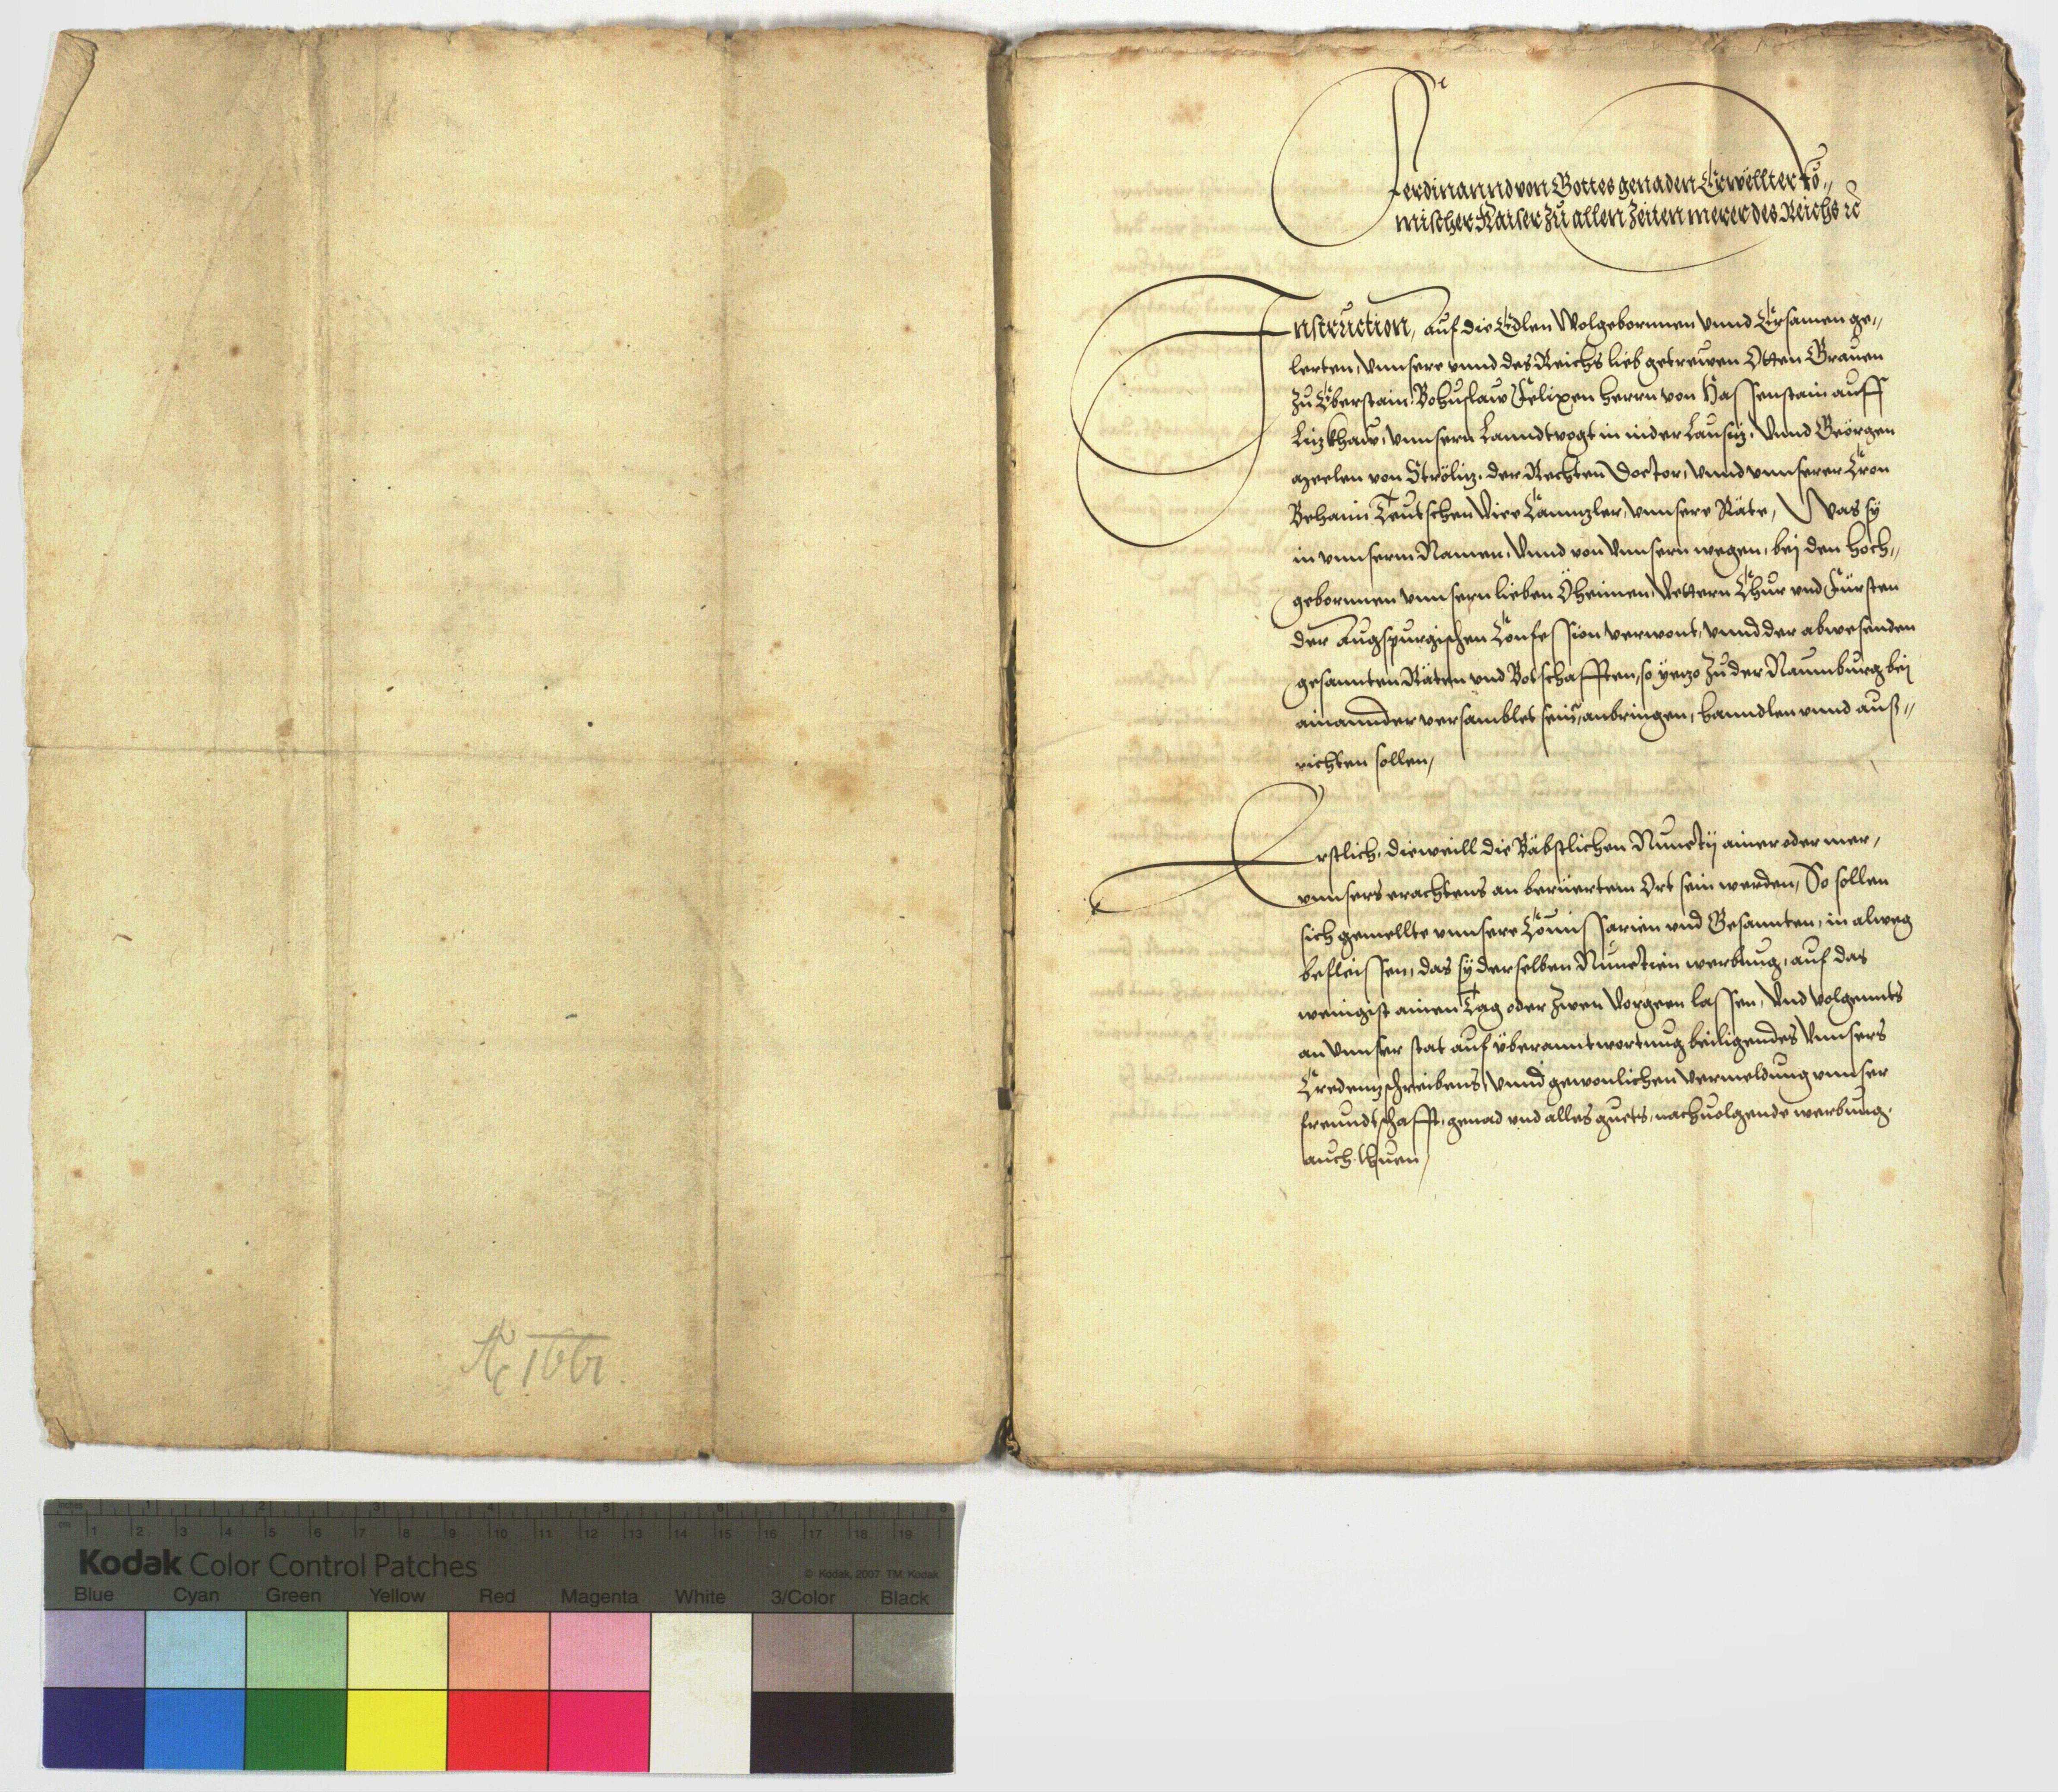 Ferdinannd von Gottes genaden Erwellter Rö⸗
mischer Kaiser zu allen Zeiten merer des Reichs ꝛc
Instruction, auf die Edlen Wolgebornnen vnnd Ersamen ge⸗
lerten, vnnsere vnnd des Reichs lieb getrewen Otten Grauen
zu Eberstain, Bohuslaw Felixen herrn von Hassenstain auff
Litzkhaw, vnnsern Lanndtvogt in nider Lausitz, Vnnd Geörgen
von Ströliz, der Rechten Doctor, vnnd vnnserer Cron
Behaim Teutschen Vice Canntzler, vnnsere Räte, Was sÿ
in vnnserm Namen, Vnnd von Vnnsern wegen, bej den hoch⸗
gebornnen vnnsern lieben Öheimen, Vettern Chur vnd Fürsten
der Augspurgischen Confession verwont, vnnd der abwesenden
gesannten Räten vnd Botschafften, so yetzo zu der Naumburg bej
ainannder versamblet sein, anbringen, hanndlen vnnd auß⸗
richten sollen,
Erstlich, dieweill die Bäbstlichen Nunctÿ ainer oder mer,
vnnsers erachtens an berüertem Ort sein werden, So sollen
sich gemellte vnnsere Commissarien vnd Gesannten, in alweg
befleissen, das sÿ derselben Nunctien werbung, auf das
wenigist ainen Tag oder zwen Vorgeen lassen, Vnd volgennts
an Vnnser stat auf vberanntwortung beiligendes Vnnsers
Credenntzschreibens, vnnd gewonlichen vermeldung vnnser
freundtschafft, genad vnd alles guets, nachuolgende werbung,
auch thuen,
Kodak Color Control Patches
© Kodak, 2007 TM: Kodak
inches 1 2 3 4 5 6 7 8
cm 1 2 3 4 5 6 7 8 9 10 11 12 13 14 15 16 17 18 19
Blue Cyan Green Yellow Red Magenta White 3/Color Black